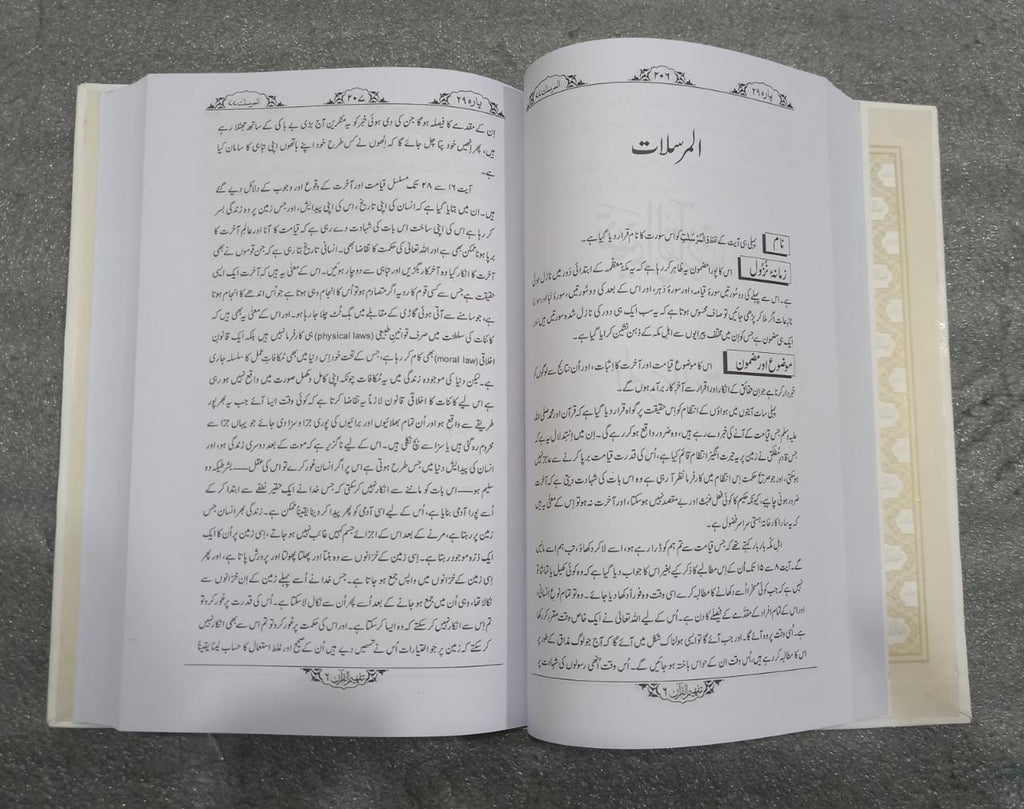 پارہ ۲۹
۲۰۶
المرسلات ۷۷
المرسلات
نام
پہلی ہی آیت کے لفظ وَالْمُرْسَلٰتِ کو اس سورت کا نام قرار دیا گیا ہے۔
زمانۂ نزُول
اس کا پورا مضمون یہ ظاہر کر رہا ہے کہ یہ مکۂ معظمہ کے ابتدائی دَور میں نازل ہوئی
ہے۔ اس سے پہلے کی دو سُورتیں سورۂ قیامہ، اور سورۂ دَہر، اور اس کے بعد کی دوسُورتیں، سورۂ نَبا اور سورۂ
نازعات اگر ملا کر پڑھی جائیں تو صاف محسوس ہوتا ہے کہ یہ سب ایک ہی دور کی نازل شدہ سورتیں ہیں اور
ایک ہی مضمون ہے جس کو اِن میں مختلف پیرایوں سے اہلِ مکہ کے ذہن نشین کرایا گیا ہے۔
موضوع اور مضمون
اس کا موضوع قیامت اور آخرت کا اِثبات، اور اُن نتائج سے لوگوں کو
خبردار کرنا ہے جو اِن حقائق کے انکار اور اقرار سے آخر کار برآمد ہوں گے۔
پہلی سات آیتوں میں ہواؤں کے انتظام کو اِس حقیقت پر گواہ قرار دیا گیا ہے کہ قرآن اور محمد صلی اللہ
علیہ وسلم جس قیامت کے آنے کی خبر دے رہے ہیں، وہ ضرور واقع ہو کر رہے گی۔ اِن میں اِستِدلال یہ ہے کہ
جس قادرِ مُطْلَق نے زمین پر یہ حیرت انگیز انتظام قائم کیا ہے، اُس کی قدرت قیامت برپا کرنے سے عاجز نہیں
ہو سکتی، اور جو صریح حکمت اِس انتظام میں کارفرما نظر آ رہی ہے وہ اس بات کی شہادت دیتی ہے کہ آخرت
ضرور ہونی چاہیے، کیونکہ حکیم کا کوئی فعل عَبَث اور بے مقصد نہیں ہو سکتا، اور آخرت نہ ہو تو اِس کے معنی یہ ہیں
کہ یہ سارا کارخانۂ ہستی سراسر فضول ہے۔
اہلِ مکّہ بار بار کہتے تھے کہ جس قیامت سے تم ہم کو ڈرا رہے ہو، اسے لا کر دکھاؤ، تب ہم اسے مانیں
گے۔ آیت ۸ سے ۱۵ تک اُن کے اِس مطالبے کا ذکر کیے بغیر اس کا جواب دیا گیا ہے کہ وہ کوئی کھیل یا تماشا تو
نہیں ہے کہ جب کوئی مسخرا اُسے دکھانے کا مطالبہ کرے اسی وقت وہ فوراً دکھا دیا جائے۔ وہ تو تمام نوعِ انسانی
اور اس کے تمام افراد کے مقدّمے کے فیصلے کا دن ہے۔ اُس کے لیے اللہ تعالیٰ نے ایک خاص وقت مقرر کر رکھا
ہے۔ اُسی وقت پر وہ آئے گا۔ اور جب آئے گا تو ایسی ہولناک شکل میں آئے گا کہ آج جو لوگ مذاق کے طور پر
اس کا مطالبہ کر رہے ہیں، اُس وقت ان کے حواس باختہ ہو جائیں گے۔ اُس وقت اُنھی رسولوں کی شہادت پر
تفہیم القرآن ۶
پارہ ۲۹
۲۰۷
المرسلت ۷۷
اِن کے مقدمے کا فیصلہ ہو گا جن کی دی ہوئی خبر کو یہ منکرین آج بڑی بے باکی کے ساتھ جھٹلا رہے
ہیں، پھر اِنھیں خود پتا چل جائے گا کہ اِنھوں نے کس طرح خود اپنے ہاتھوں اپنی تباہی کا سامان کیا
ہے۔
آیت ۱۶ سے ۲۸ تک مسلسل قیامت اور آخرت کے وقوع اور وجوب کے دلائل دیے گئے
ہیں۔ ان میں بتایا گیا ہے کہ انسان کی اپنی تاریخ، اس کی اپنی پیدائش، اور جس زمین پر وہ زندگی بسر
کر رہا ہے اس کی اپنی ساخت اس بات کی شہادت دے رہی ہے کہ قیامت کا آنا اور عالمِ آخرت کا
برپا ہونا ممکن بھی ہے اور اللہ تعالیٰ کی حکمت کا تقاضا بھی۔ انسانی تاریخ بتا رہی ہے کہ جن قوموں نے بھی
آخرت کا انکار کیا وہ آخر کار بگڑیں اور تباہی سے دوچار ہوئیں۔ اس کے معنی یہ ہیں کہ آخرت ایک ایسی
حقیقت ہے جس سے کسی قوم کا رویہ اگر متصادم ہو تو اُس کا انجام وہی ہوتا ہے جو اُس اندھے کا انجام ہوتا
ہے، جو سامنے سے آتی ہوئی گاڑی کے مقابلے میں بگ ٹٹ چلا جا رہا ہو۔ اور اس کے معنی یہ بھی ہیں کہ
کائنات کی سلطنت میں صرف قوانینِ طبیعی (physical laws) ہی کارفرما نہیں ہیں بلکہ ایک قانونِ
اخلاقی (moral law) بھی کام کر رہا ہے، جس کے تحت خود اِس دنیا میں بھی مُکافاتِ عمل کا سلسلہ جاری
ہے۔ لیکن دنیا کی موجودہ زندگی میں یہ مُکافات چونکہ اپنی کامل و مکمل صورت میں واقع نہیں ہو رہی
ہے اس لیے کائنات کا اخلاقی قانون لازماً یہ تقاضا کرتا ہے کہ کوئی وقت ایسا آئے جب یہ بھرپور
طریقے سے واقع ہو اور اُن تمام بھلائیوں اور برائیوں کی پوری جزا و سزا دی جائے جو یہاں جزا سے
محروم رہ گئی ہیں یا سزا سے بچ نکلی ہیں۔ اس کے لیے ناگزیر ہے کہ موت کے بعد دوسری زندگی ہو، اور
انسان کی پیدائش دنیا میں جس طرح ہوتی ہے اس پر اگر انسان غور کرے تو اس کی عقل ــــ بشرطیکہ وہ
سلیم ہو ــــ اس بات کو ماننے سے انکار نہیں کر سکتی کہ جس خدا نے ایک حقیر نطفے سے ابتدا کر کے
اُسے پورا آدمی بنایا ہے، اُس کے لیے اسی آدمی کو پھر پیدا کر دینا یقیناً ممکن ہے۔ زندگی بھر انسان جس
زمین پر رہتا ہے، مرنے کے بعد اس کے اجزائے جسم کہیں غائب نہیں ہو جاتے، اِسی زمین پر اُن کا ایک
ایک ذرہ موجود رہتا ہے۔ اِسی زمین کے خزانوں سے وہ بنتا اور پھلتا پھولتا اور پرورش پاتا ہے، اور پھر
اِسی زمین کے خزانوں میں واپس جمع ہو جاتا ہے۔ جس خدا نے اُسے پہلے زمین کے اِن خزانوں سے
نکالا تھا، وہی اُن میں جمع ہو جانے کے بعد اُسے پھر اُن سے نکال لا سکتا ہے۔ اُس کی قدرت پر غور کرو تو
تم اِس سے انکار نہیں کر سکتے کہ وہ ایسا کر سکتا ہے۔ اور اس کی حکمت پر غور کرو تو تم اس سے بھی انکار نہیں
کر سکتے کہ زمین پر جو اختیارات اُس نے تمھیں دیے ہیں اُن کے صحیح اور غلط استعمال کا حساب لینا یقیناً
تفہیم القرآن ۶